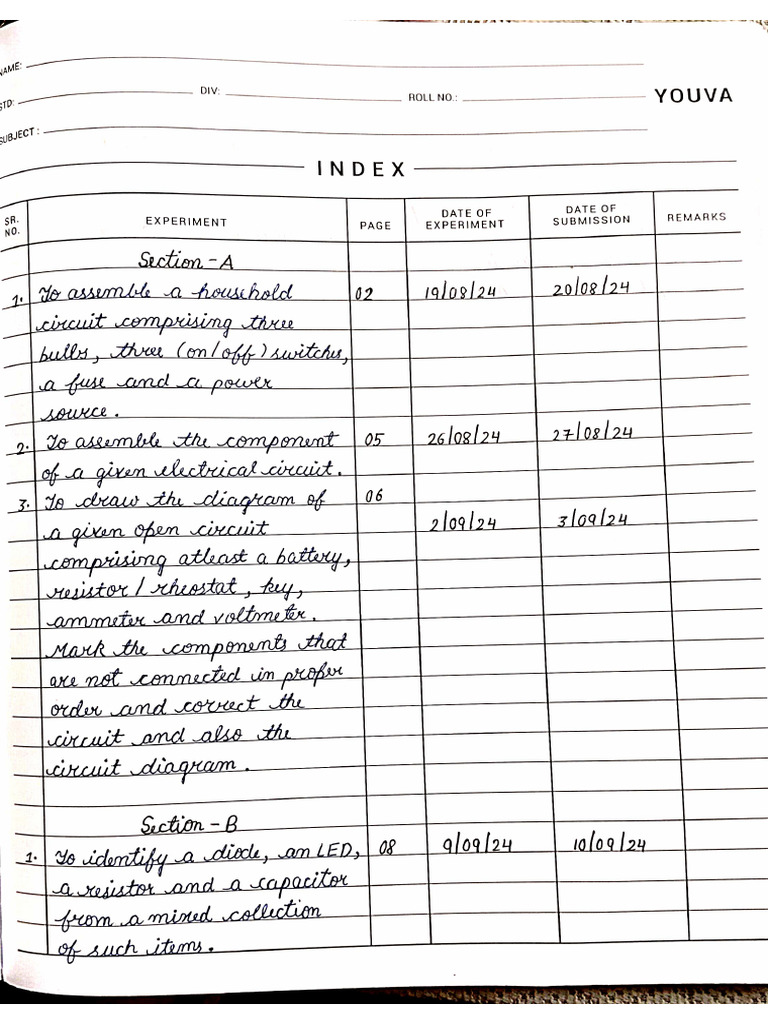 NAME:
STD: DIV: ROLL NO.: YOUVA
SUBJECT :
INDEX
SR. NO. EXPERIMENT PAGE DATE OF EXPERIMENT DATE OF SUBMISSION REMARKS
Section - A
1. To assemble a household 02 19/08/24 20/08/24
circuit comprising three
bulbs, three (on/off) switches,
a fuse and a power
source.
2. To assemble the component 05 26/08/24 27/08/24
of a given electrical circuit.
3. To draw the diagram of 06
a given open circuit 2/09/24 3/09/24
comprising atleast a battery,
resistor / rheostat, key,
ammeter and voltmeter.
Mark the components that
are not connected in proper
order and correct the
circuit and also the
circuit diagram.
Section - B
1. To identify a diode, an LED, 08 9/09/24 10/09/24
a resistor and a capacitor
from a mixed collection
of such items.